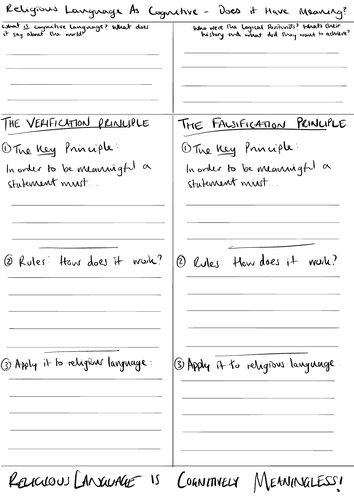 Religious Language As Cognitive - Does it Have Meaning?
What is cognitive language? What does
it say about the world?
Who were the Logical Positivists? What's their
history and what did they want to achieve?
THE VERIFICATION PRINCIPLE
① The Key Principle:
In order to be meaningful a
statement must...
② Rules: How does it work?
③ Apply it to religious language:
THE FALSIFICATION PRINCIPLE
① The Key Principle:
In order to be meaningful a
statement must...
② Rules: How does it work?
③ Apply it to religious language:
RELIGIOUS LANGUAGE IS COGNITIVELY MEANINGLESS!